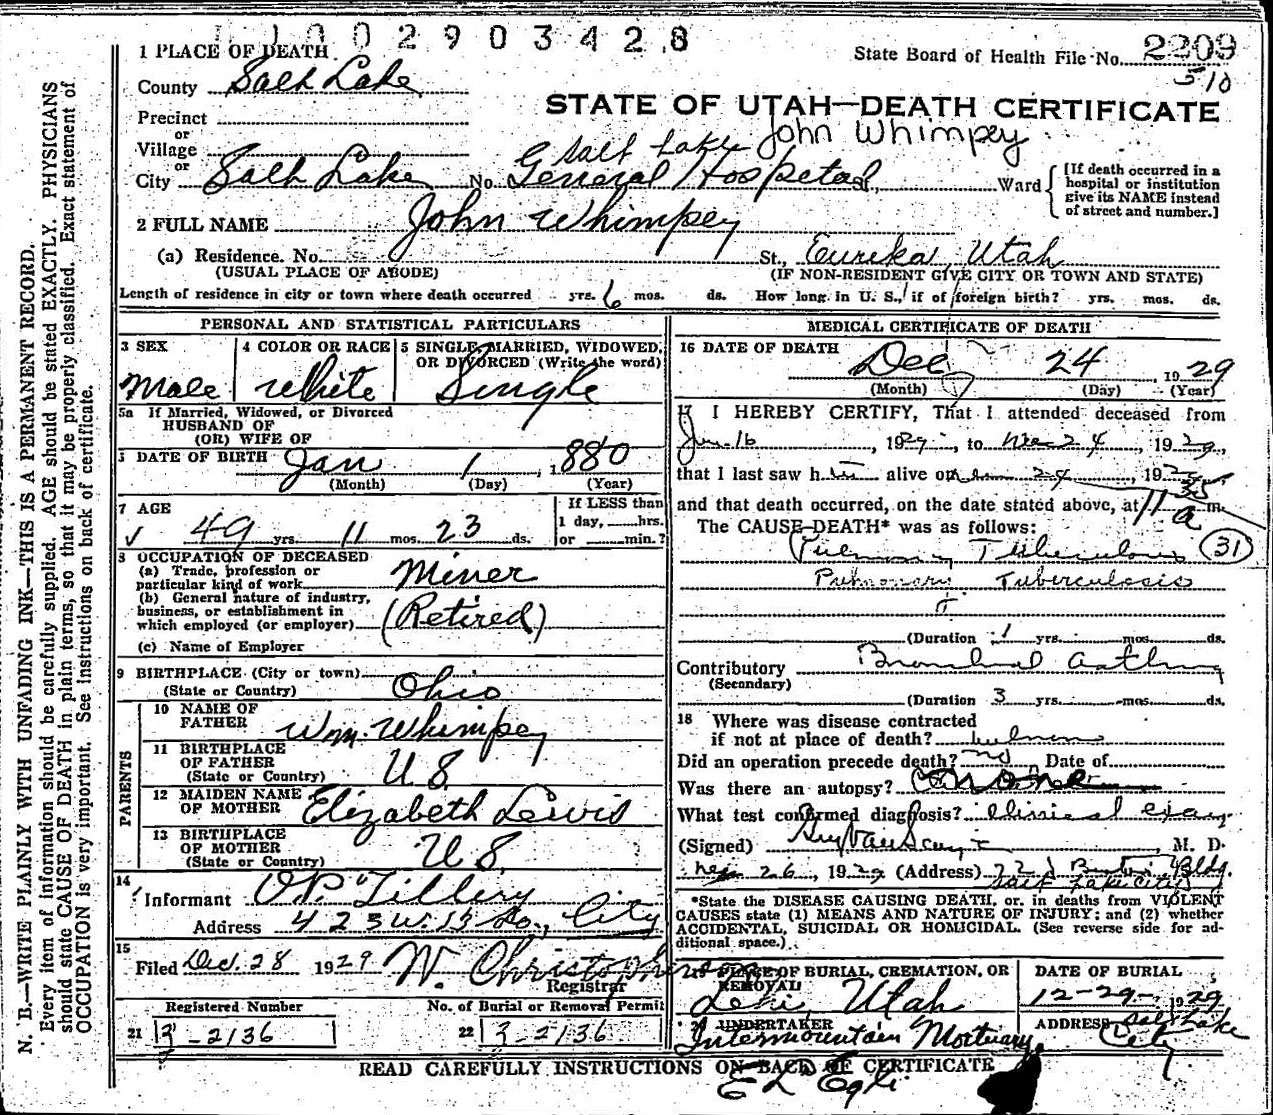 1 1 0 0 2 9 0 3 4 2 . 8
1 PLACE OF DEATH
State Board of Health File No. 2209
510
County Salt Lake
STATE OF UTAH—DEATH CERTIFICATE
John Whimpey
Precinct
or
Village
or
City Salt Lake No. Salt Lake General Hospital St., Ward
[If death occurred in a
hospital or institution
give its NAME instead
of street and number.]
2 FULL NAME John Whimpey
(a) Residence. No. St., Eureka, Utah
(USUAL PLACE OF ABODE) (IF NON-RESIDENT GIVE CITY OR TOWN AND STATE)
Length of residence in city or town where death occurred yrs. 6 mos. ds. How long in U. S., if of foreign birth? yrs. mos. ds.
PERSONAL AND STATISTICAL PARTICULARS
3 SEX Male
4 COLOR OR RACE White
5 SINGLE, MARRIED, WIDOWED,
OR DIVORCED (Write the word)
Single
5a If Married, Widowed, or Divorced
HUSBAND OF
(OR) WIFE OF
DATE OF BIRTH Jan 1, 1880
(Month) (Day) (Year)
7 AGE
49 yrs. 11 mos. 23 ds.
If LESS than
1 day, hrs.
or min.?
8 OCCUPATION OF DECEASED
(a) Trade, profession or
particular kind of work Miner
(b) General nature of industry,
business, or establishment in
which employed (or employer) (Retired)
(c) Name of Employer
9 BIRTHPLACE (City or town)
(State or Country) Ohio
PARENTS
10 NAME OF
FATHER Wm. Whimpey
11 BIRTHPLACE
OF FATHER
(State or Country) U S
12 MAIDEN NAME
OF MOTHER Elizabeth Lewis
13 BIRTHPLACE
OF MOTHER
(State or Country) U S
14
Informant O.P. Tillery
Address 423 W. 13 So., City
15
Filed Dec. 28 1929 W. Christopherson
Registrar
Registered Number No. of Burial or Removal Permit
21 3-2136 22 3-2136
MEDICAL CERTIFICATE OF DEATH
16 DATE OF DEATH
Dec 24, 1929
(Month) (Day) (Year)
17 I HEREBY CERTIFY, That I attended deceased from
16, 1929, to Dec 24, 1929,
that I last saw him alive on 24, 192
and that death occurred, on the date stated above, at 11 35 a m.
The CAUSE DEATH* was as follows:
Pulmonary Tuberculosis (31)
Pulmonary Tuberculosis
(Duration 1 yrs. mos. ds.
Contributory Bronchial asthma
(Secondary)
(Duration 3 yrs. mos. ds.
18 Where was disease contracted
if not at place of death?
Did an operation precede death? no Date of
Was there an autopsy?
What test confirmed diagnosis? clinical exam
(Signed) , M. D.
26, 1929 (Address) Bldg.
Salt Lake City
*State the DISEASE CAUSING DEATH, or, in deaths from VIOLENT
CAUSES state (1) MEANS AND NATURE OF INJURY; and (2) whether
ACCIDENTAL, SUICIDAL OR HOMICIDAL. (See reverse side for ad-
ditional space.)
19 PLACE OF BURIAL, CREMATION, OR
REMOVAL
Lehi, Utah
DATE OF BURIAL
12-29-, 1929
20 UNDERTAKER
Intermountain Mortuary
E L Egli
ADDRESS Salt Lake
City
READ CAREFULLY INSTRUCTIONS ON BACK OF CERTIFICATE
N. B.—WRITE PLAINLY WITH UNFADING INK—THIS IS A PERMANENT RECORD.
Every item of information should be carefully supplied. AGE should be stated EXACTLY. PHYSICIANS
should state CAUSE OF DEATH in plain terms, so that it may be properly classified. Exact statement of
OCCUPATION is very important. See instructions on back of certificate.